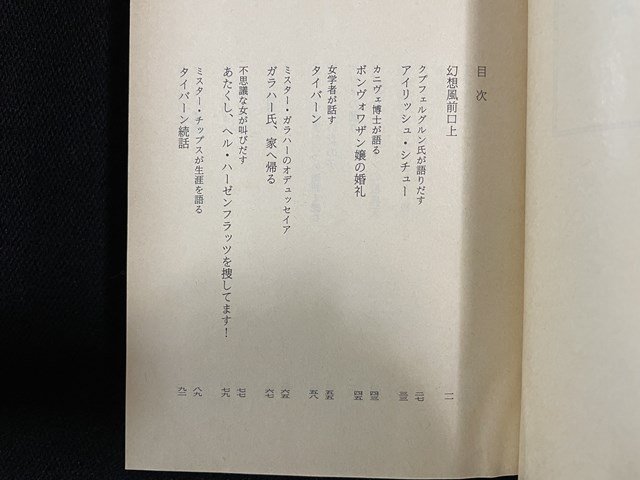 目次
幻想風前口上 一一
クプフェルグルン氏が語りだす 二七
アイリッシュ・シチュー 三三
カニヴェ博士が語る 四三
ボンヴォワザン嬢の婚礼 四五
女学者が話す 五五
タイバーン 五八
ミスター・ガラハーのオデュッセイア 六五
ガラハー氏、家へ帰る 六七
不思議な女が叫びだす 七七
あたくし、ヘル・ハーゼンフラッツを捜してます! 七九
ミスター・チップスが生涯を語る 八九
タイバーン続話 九二